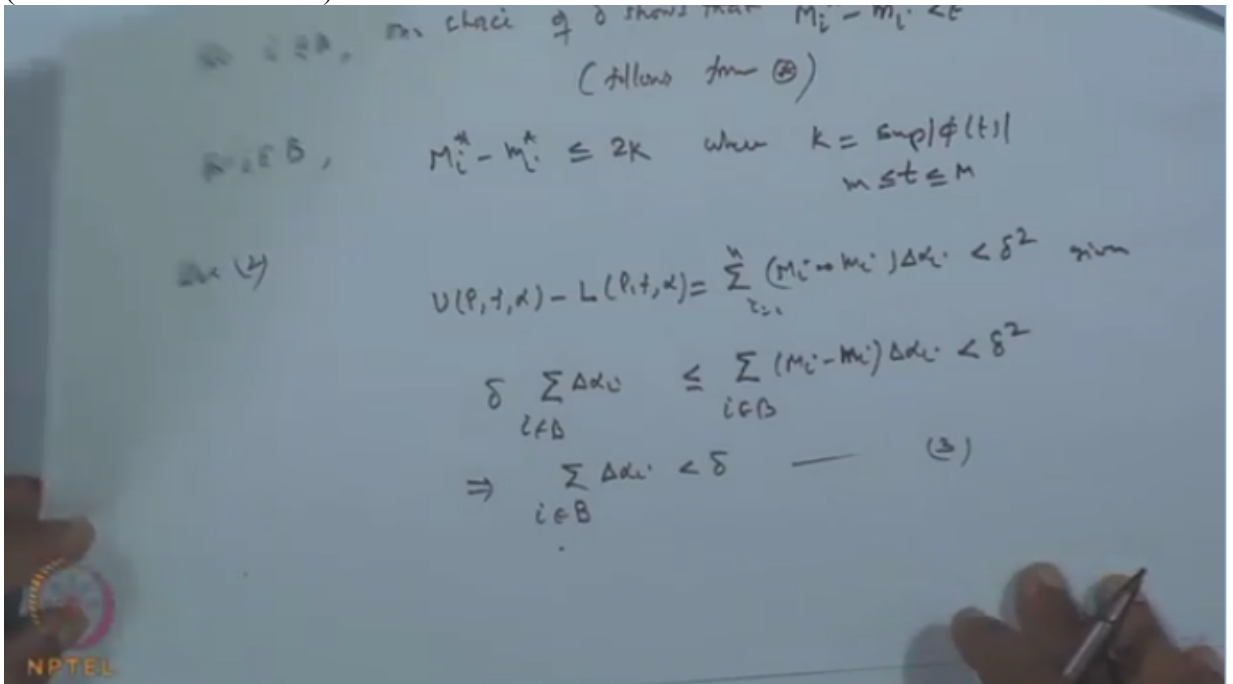 i ∈ A, our choice of δ shows that M_i^* - m_i^* < ε
(follows from ⊛)
i ∈ B, M_i^* - m_i^* ≤ 2K where K = sup|ϕ(t)|
m ≤ t ≤ M
(2)
U(P,f,α) - L(P,f,α) = Σ_{i=1}^{n} (M_i - m_i) Δα_i < δ² given
δ Σ_{i∈B} Δα_i ≤ Σ_{i∈B} (M_i - m_i) Δα_i < δ²
⇒ Σ_{i∈B} Δα_i < δ — (3)
NPTEL